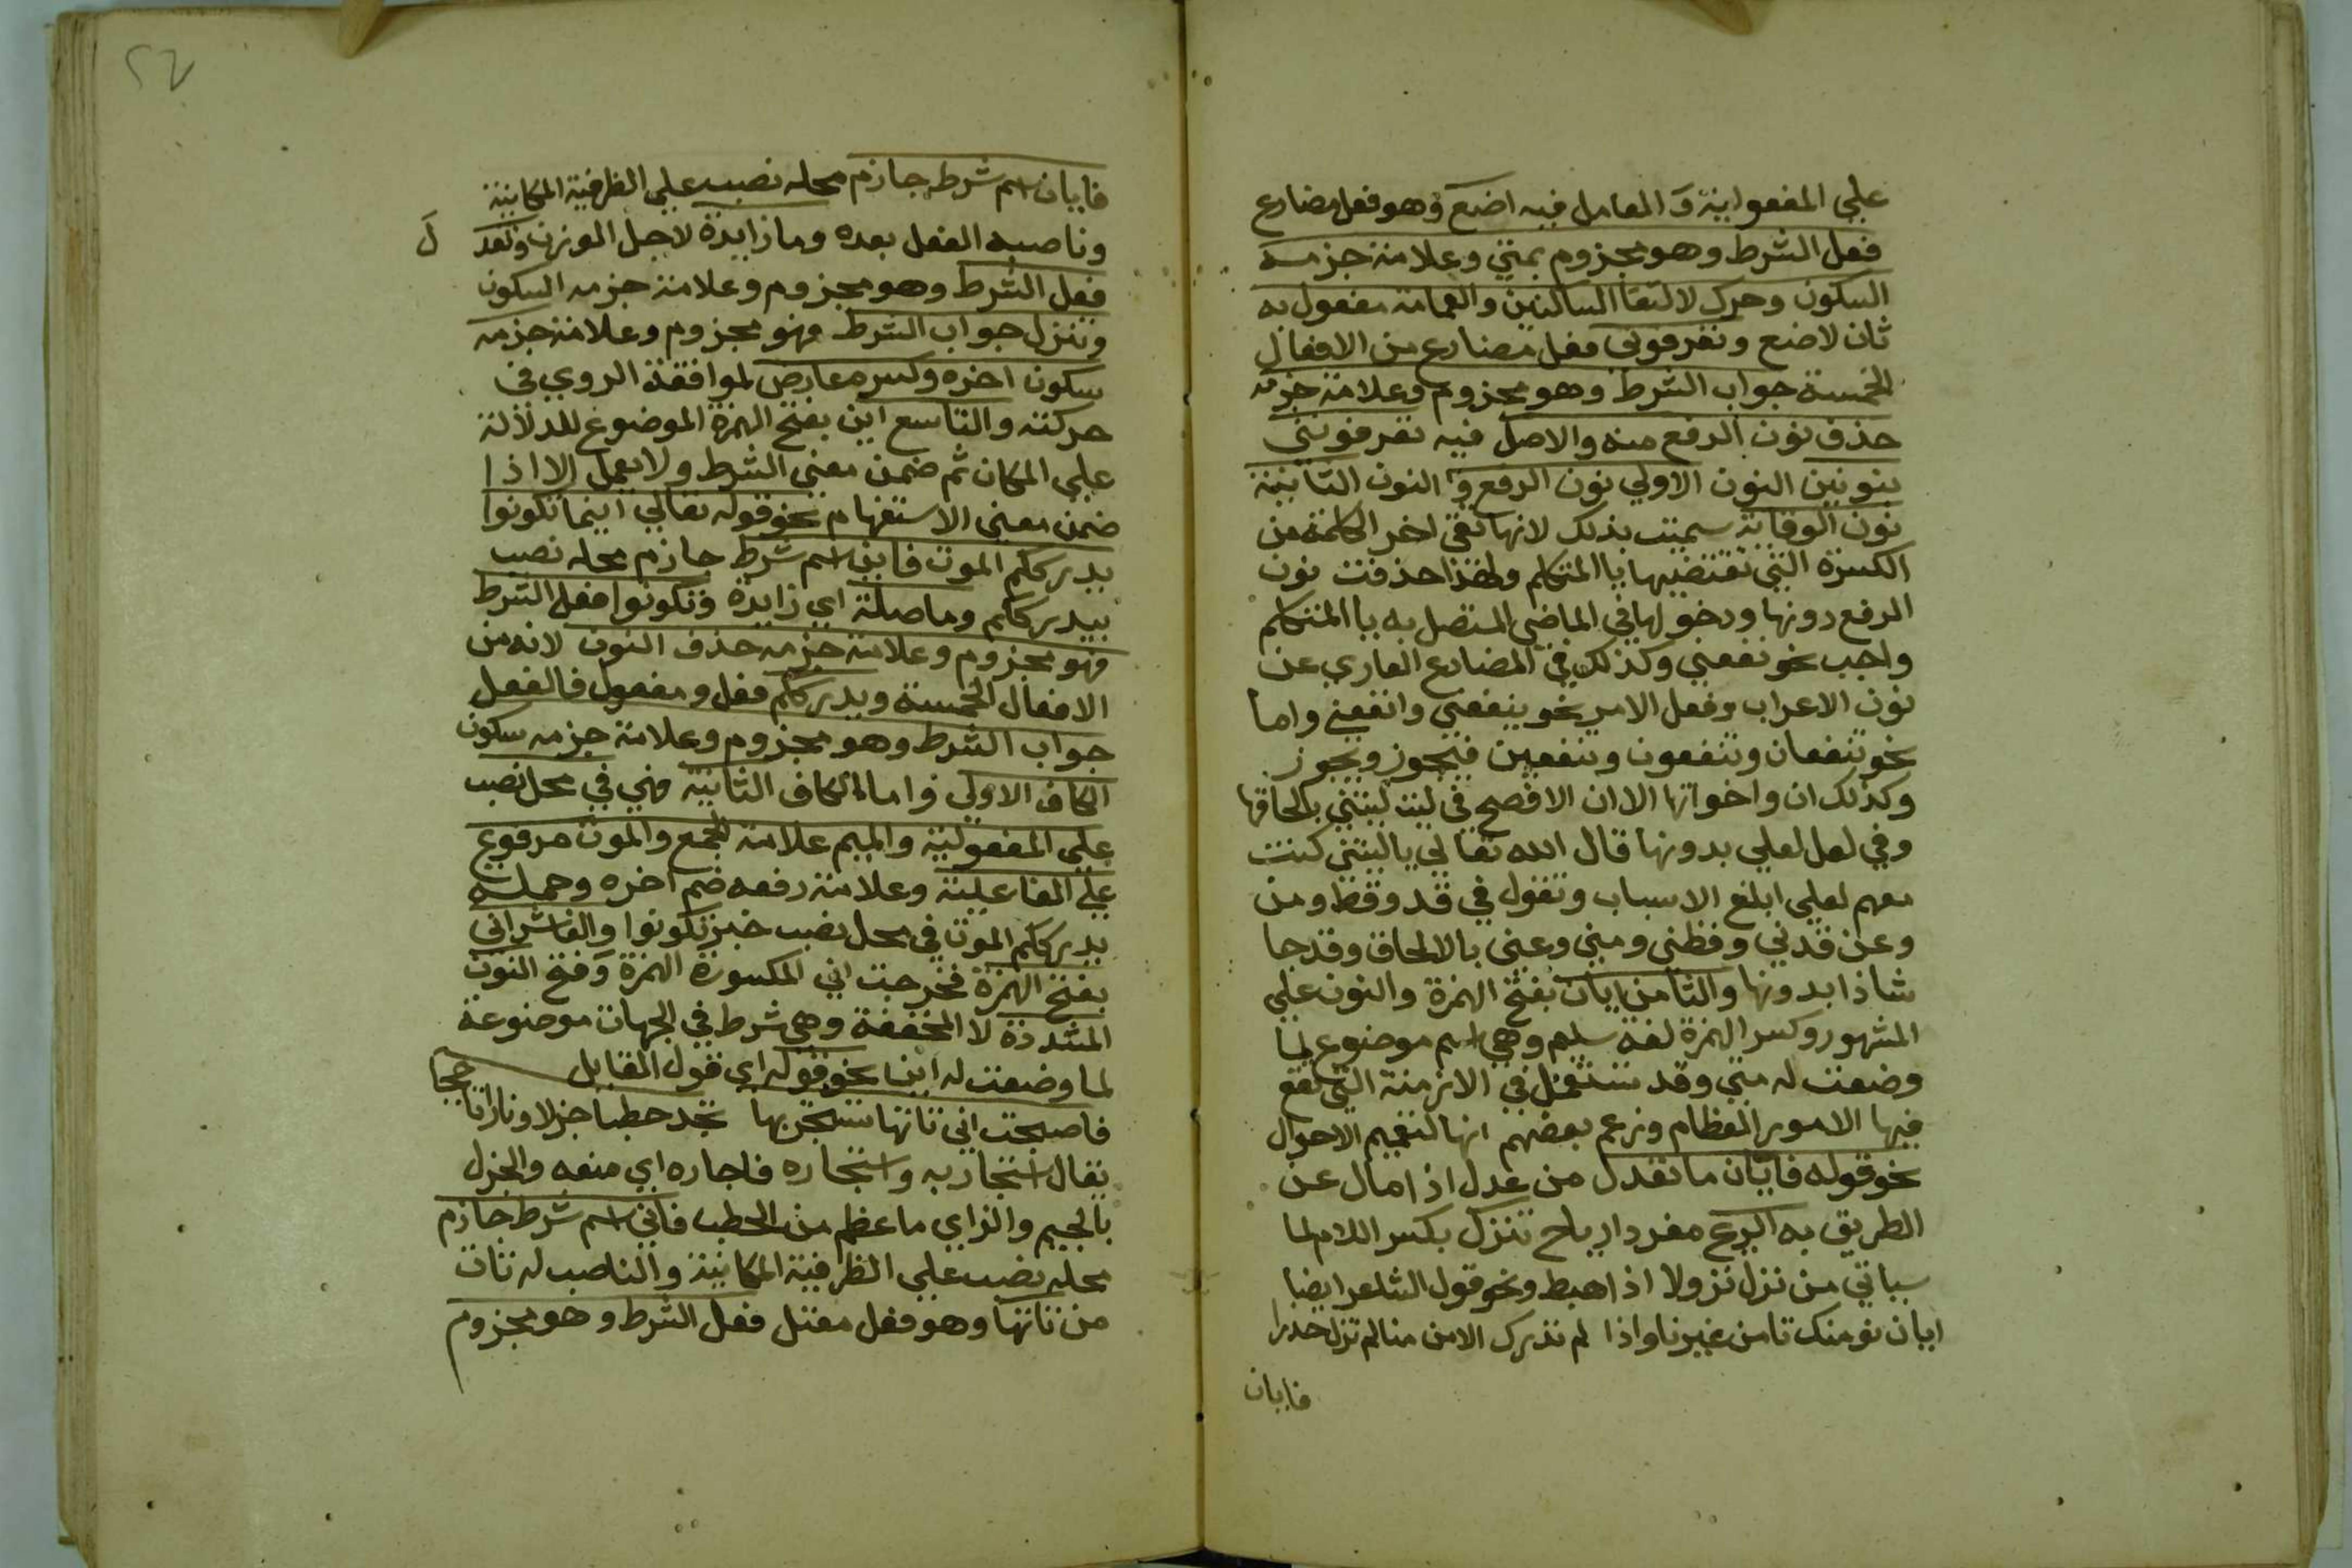 علي المفعولية والعامل فيه اضع وهو فعل مضارع
فعل الشرط وهو مجزوم بمتي وعلامة جزمه
السكون وحرك لالتقا الساكنين والعمامة مفعول به
ثان لاضع وتعرفوني فعل مضارع من الافعال
الخمسة جواب الشرط وهو مجزوم وعلامة جزمه
حذف نون الرفع منه والاصل فيه تعرفونني
بنونين النون الاولي نون الرفع والنون الثانية
نون الوقاية سميت بذلك لانها تقي اخر الكلمة من
الكسرة التي تقتضيها يا المتكلم ولهذا حذفت نون
الرفع دونها ودخولها في الماضي المتصل به يا المتكلم
واجب نحو نفعني وكذلك في المضارع العاري عن
نون الاعراب وفعل الامر نحو ينفعني وانفعني واما
نحو تنفعان وتنفعون وتنفعين فيجوز ويجوز
وكذلك ان واخواتها الا ان الافصح في ليت ليتني بالحاقها
وفي لعل لعلي بدونها قال الله تعالي ياليتني كنت
معهم لعلي ابلغ الاسباب وتقول في قد وقط ومن
وعن قدني وقطني ومني وعني بالالحاق وقد جا
شاذا بدونها والثامن ايان بفتح الهمزة والنون علي
المشهور وكسر الهمزة لغة سليم وهي اسم موضوع لما
وضعت له متي وقد تستعمل في الازمنة التي تقع
فيها الامور العظام وزعم بعضهم انها لتعميم الاحوال
نحو قوله فايان ما تعدل من عدل اذا مال عن
الطريق به الريح مفرد ارياح تنزل بكسر اللام لما
سياتي من نزل نزولا اذا هبط ونحو قول الشاعر ايضا
ايان نومنك تامن غيرنا واذا لم تدرك الامن منا لم تزل حذرا
فايان
فايان اسم شرط جازم محله نصب علي الظرفية المكانية
وناصبه الفعل بعده وما زايدة لاجل الوزن وتعد ل
فعل الشرط وهو مجزوم وعلامة جزمه السكون
وتنزل جواب الشرط فهو مجزوم وعلامة جزمه
سكون اخره وكسر معارض لموافقة الروي في
حركته والتاسع اين بفتح الهمزة الموضوع للدلالة
علي المكان ثم ضمن معني الشرط ولا يعمل الا اذا
ضمن معني الاستفهام نحو قوله تعالي اينما تكونوا
يدرككم الموت فاين اسم شرط جازم محله نصب
بيدرككم وما صلة اي زايدة وتكونوا فعل الشرط
فهو مجزوم وعلامة جزمه حذف النون لانه من
الافعال الخمسة ويدرككم فعل ومفعول فالفعل
جواب الشرط وهو مجزوم وعلامة جزمه سكون
الكاف الاولي واما الكاف الثانية فهي في محل نصب
علي المفعولية والميم علامة الجمع والموت مرفوع
علي الفاعلية وعلامة رفعه ضم اخره وجملة
يدرككم الموت في محل نصب خبر تكونوا والعاشر اني
بفتح الهمزة فخرجت اني المكسورة الهمزة وفتح النون
المشددة لا المخففة وهي شرط في الجهات موضوعة
لما وضعت له اين نحو قوله اي قول القايل
فاصبحت اني تاتها تستجر بها تجد حطبا جزلا ونارا تاججا
يقال استجار به واستجاره فاجاره اي منعه والجزل
بالجيم والزاي ما عظم من الحطب فاني اسم شرط جازم
محله نصب علي الظرفية المكانية والناصب له تات
من تاتها وهو فعل معتل فعل الشرط وهو مجزوم